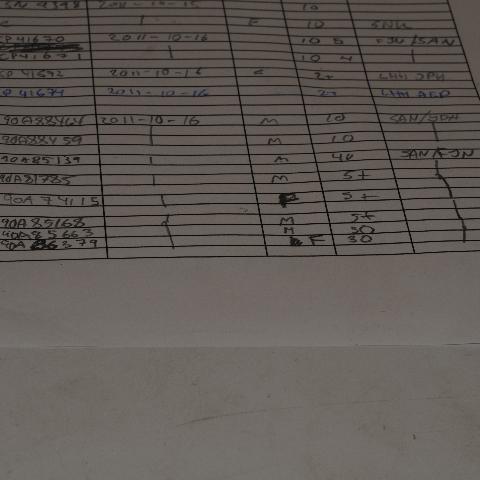 SN 4398 2011-10-15 10
F 10 SNK
CP41670 2011-10-16 10 5 FJN/SAN
CP41671 10 4
CP 41672 2011-10-16 2+ LHH JPH
CP 41674 2011-10-16 2+ LHM AEP
90A88464 2011-10-16 M 10 SAN/
90A88459 M 10
90A85139 M 40 SAN/FJN
90A81785 M 5+
90A 74115 F 5+
90A85168 M 5+
90A85663 M 50
90A 86379 F 30